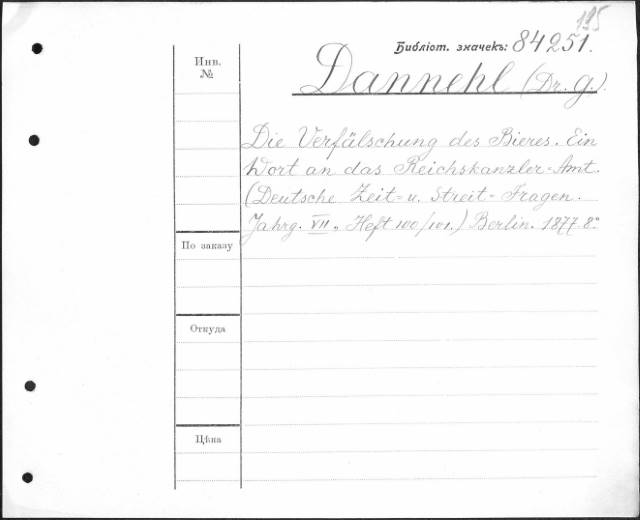 195
Библіот. значекъ: 84251.
Инв. №
Dannehl (Dr. G.)
Die Verfälschung des Bieres. Ein
Wort an das Reichskanzler-Amt.
(Deutsche Zeit- u. Streit-Fragen.
Jahrg. VII. Heft 100/101.) Berlin. 1877. 8°
По заказу
Откуда
Цѣна